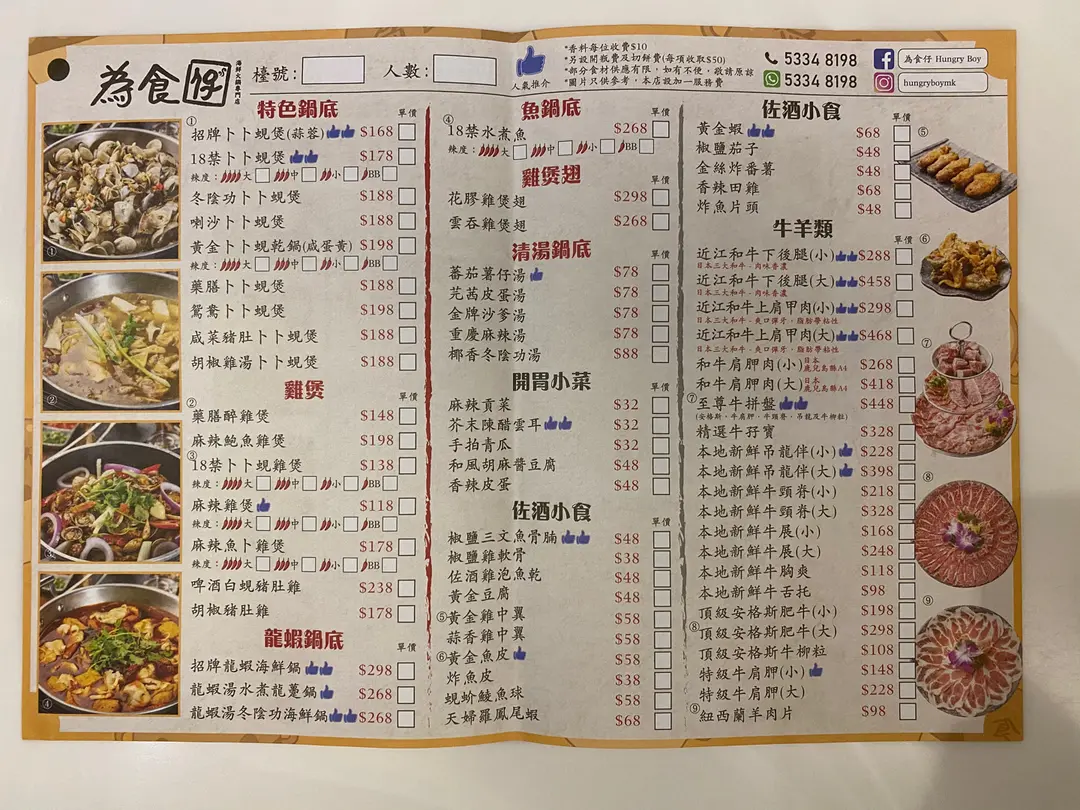 為食仔
海鮮火鍋專門店
檯號：
人數：
人氣推介
*香料每位收費$10
*另設開瓶費及切餅費(每項收取$50)
*部分食材供應有限，如有不便，敬請原諒
*圖片只供參考，本店設加一服務費
5334 8198
5334 8198
為食仔 Hungry Boy
hungryboymk
特色鍋底
單價
①
招牌卜卜蜆煲(蒜蓉) $168
18禁卜卜蜆煲 $178
辣度： 大 中 小 BB
冬陰功卜卜蜆煲 $188
喇沙卜卜蜆煲 $188
黃金卜卜蜆乾鍋(咸蛋黃) $198
辣度： 大 中 小 BB
藥膳卜卜蜆煲 $188
鴛鴦卜卜蜆煲 $198
咸菜豬肚卜卜蜆煲 $188
胡椒雞湯卜卜蜆煲 $188
雞煲
單價
②
藥膳醉雞煲 $148
麻辣鮑魚雞煲 $198
③
18禁卜卜蜆雞煲 $138
辣度： 大 中 小 BB
麻辣雞煲 $118
辣度： 大 中 小 BB
麻辣魚卜雞煲 $178
辣度： 大 中 小 BB
啤酒白蜆豬肚雞 $238
胡椒豬肚雞 $178
龍蝦鍋底
單價
招牌龍蝦海鮮鍋 $298
龍蝦湯水煮龍躉鍋 $268
龍蝦湯冬陰功海鮮鍋 $268
①
②
③
④
魚鍋底
單價
④
18禁水煮魚 $268
辣度： 大 中 小 BB
雞煲翅
單價
花膠雞煲翅 $298
雲吞雞煲翅 $268
清湯鍋底
單價
蕃茄薯仔湯 $78
芫茜皮蛋湯 $78
金牌沙爹湯 $78
重慶麻辣湯 $78
椰香冬陰功湯 $88
開胃小菜
單價
麻辣貢菜 $32
芥末陳醋雲耳 $32
手拍青瓜 $32
和風胡麻醬豆腐 $48
香辣皮蛋 $48
佐酒小食
單價
椒鹽三文魚骨腩 $48
椒鹽雞軟骨 $38
佐酒雞泡魚乾 $48
黃金豆腐 $48
⑤黃金雞中翼 $58
蒜香雞中翼 $58
⑥黃金魚皮 $58
炸魚皮 $38
蜆蚧鯪魚球 $58
天婦羅鳳尾蝦 $68
佐酒小食
單價
黃金蝦 $68
椒鹽茄子 $48
金絲炸番薯 $48
香辣田雞 $68
炸魚片頭 $48
牛羊類
單價
近江和牛下後腿(小) $288
日本三大和牛，肉味香濃
近江和牛下後腿(大) $458
日本三大和牛，肉味香濃
近江和牛上肩甲肉(小) $298
日本三大和牛，爽口彈牙，脂肪帶粘性
近江和牛上肩甲肉(大) $468
日本三大和牛，爽口彈牙，脂肪帶粘性
和牛肩胛肉(小)日本鹿兒島縣A4 $268
和牛肩胛肉(大)日本鹿兒島縣A4 $418
⑦至尊牛拼盤 $448
(安格斯，牛肩胛，牛頸脊，吊龍及牛柳粒)
精選牛孖寶 $328
本地新鮮吊龍伴(小) $228
本地新鮮吊龍伴(大) $398
本地新鮮牛頸脊(小) $218
本地新鮮牛頸脊(大) $328
本地新鮮牛展(小) $168
本地新鮮牛展(大) $248
本地新鮮牛胸爽 $118
本地新鮮牛舌托 $98
頂級安格斯肥牛(小) $198
⑧頂級安格斯肥牛(大) $298
頂級安格斯牛柳粒 $108
特級牛肩胛(小) $148
特級牛肩胛(大) $228
⑨紐西蘭羊肉片 $98
⑤
⑥
⑦
⑧
⑨